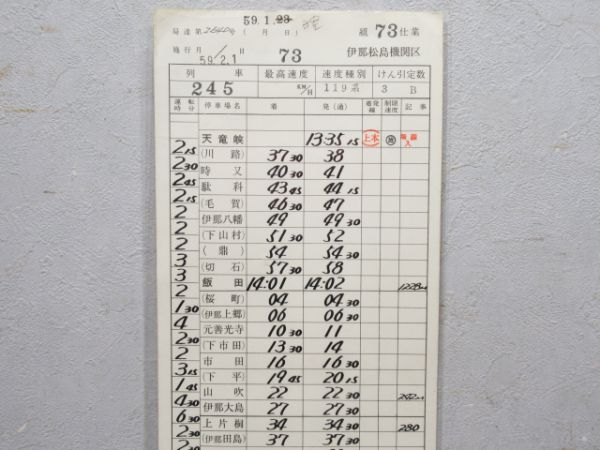 59.1.23
局達第2640号 (月日)
組 73 仕業
施行 月 日
59/2.1
73
伊那松島機関区
列車 最高速度 速度種別 けん引定数
245 KM/H 119系 3 B
運転時分 停車場名 着 発(通) 着発線 制限速度 記事
天竜峡 13:35 15 上本
2 15 (川路) 37 30 38
2 30 時又 40 30 41
2 45 駄科 43 45 44 15
2 15 (毛賀) 46 30 47
2 伊那八幡 49 49 30
2 (下山村) 51 30 52
2 (鼎) 54 54 30
3 (切石) 57 30 58
3 飯田 14:01 14:02
2 (桜町) 04 04 30
1 30 (伊那上郷) 06 06 30
4 元善光寺 10 30 11
2 30 (下市田) 13 30 14
2 市田 16 16 30
3 15 (下平) 19 45 20 15
1 45 山吹 22 22 30
4 30 伊那大島 27 27 30
6 30 上片桐 34 34 30 280
2 30 (伊那田島) 37 37 30
2 30